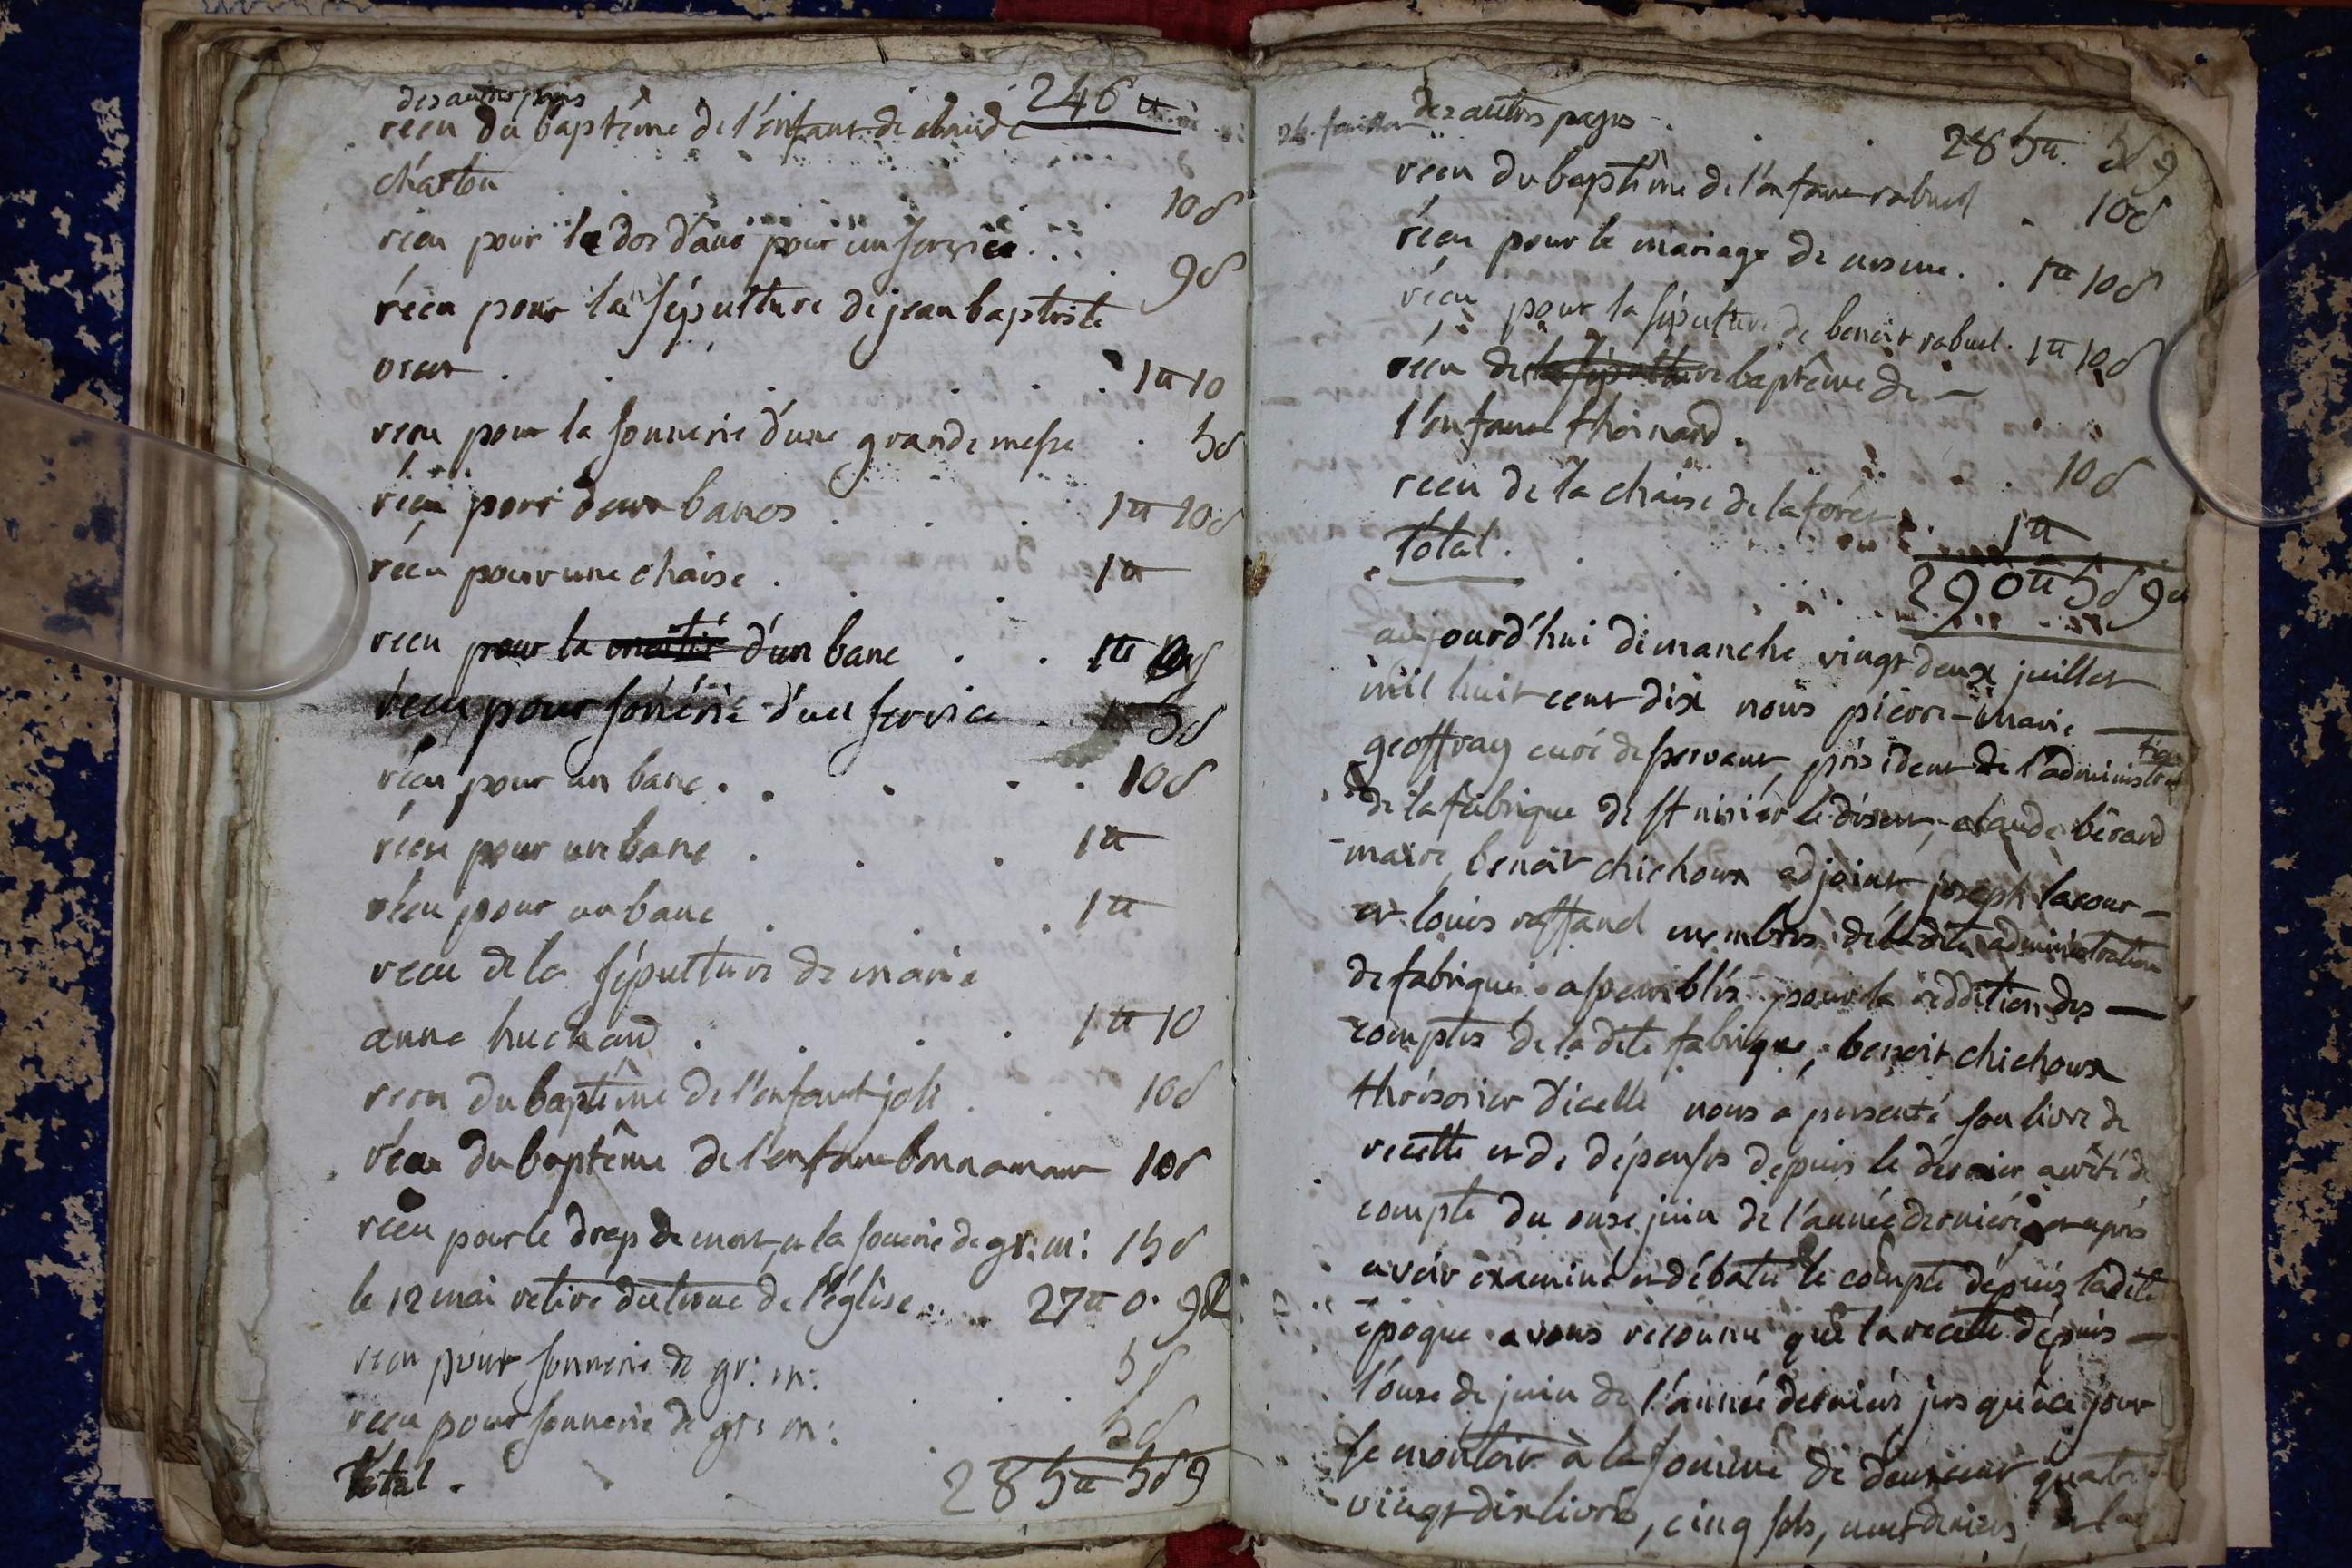 des autres pages 246 ₶
reçu du baptême de l'enfant de claude
charton 10 s
reçu pour le dos d'ane pour un service 9 s
reçu pour la sépulture de jean baptiste
1₶ 10
reçu pour la sonnerie d'une grande messe 5 s
reçu pour deux bancs 1₶ 10 s
reçu pour une chaise 1₶
reçu pour la moitié d'un banc 1₶
reçu pour sonnerie d'un service 5 s
reçu pour un banc 10 s
reçu pour un banc 1₶
reçu pour un banc 1₶
reçu de la sépulture de marie
anne huchard 1₶ 10
reçu du baptême de l'enfant joli 10 s
reçu du baptême de l'enfant bonnamour 10 s
reçu pour le drap de mort, et la sonnerie de gr: m: 15 s
le 12 mai retiré du tronc de l'église 27₶ 0. 9 d
reçu pour sonnerie de gr: m: 5 s
reçu pour sonnerie de gr: m: 5 s
total. 285₶ 5 s 9
des autres pages 285₶. 5 s 9
reçu du baptême de l'enfant rabuel 10 s
reçu pour le mariage de 1₶ 10 s
reçu pour la sépulture de benoit rabuel. 1₶ 10 s
reçu de la sépulture baptême de
l'enfant thoinard. 10 s
reçu de la chaise de laforêt 1₶
total. 290₶ 5 s 9 d
aujourd'hui dimanche vingt deux juillet
mil huit cent dix nous pierre-marie
geoffray curé desservant, président de l'administration
de la fabrique de st nisier le désert, claude bérard
maire, benoit chichoux adjoint, joseph lacour
et louis raffand membres de ladite administration
de fabrique assemblés pour la reddition des
comptes de la dite fabrique, benoit chichoux
thrésorier d'icelle nous a présenté son livre de
recette et de dépenses depuis le dernier arrêté de
compte du onze juin de l'année dernière, et après
avoir examiné et débatu le compte depuis ladite
époque avons reconnu que la recette depuis
l'onze de juin de l'année dernière jusqu'à ce jour
se montoit à la somme de deux cent quatre
vingt dix livres, cinq sols, neuf deniers, et la